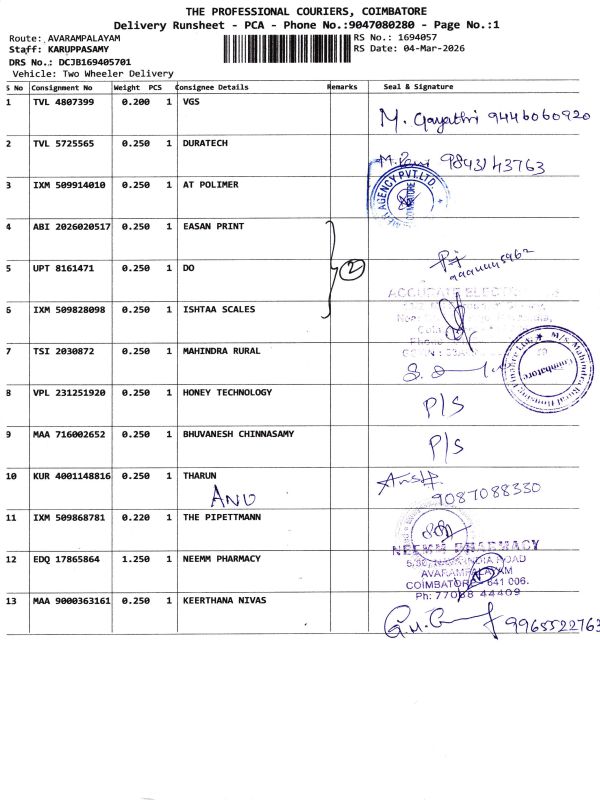 THE PROFESSIONAL COURIERS, COIMBATORE
Delivery Runsheet - PCA - Phone No.:9047080280 - Page No.:1
Route: AVARAMPALAYAM
RS No.: 1694057
Staff: KARUPPASAMY
RS Date: 04-Mar-2026
DRS No.: DCJB169405701
Vehicle: Two Wheeler Delivery
S No Consignment No Weight PCS Consignee Details Remarks Seal & Signature
1 TVL 4807399 0.200 1 VGS
M. Gayathri 9446060920
2 TVL 5725565 0.250 1 DURATECH
9843143763
3 IXM 509914010 0.250 1 AT POLIMER
AGENCY PVT.LTD.
COIMBATORE
4 ABI 2026020517 0.250 1 EASAN PRINT
5 UPT 8161471 0.250 1 DO
2
ACCURATE
6 IXM 509828098 0.250 1 ISHTAA SCALES
7 TSI 2030872 0.250 1 MAHINDRA RURAL
M/s. Mahindra Rural Housing Finance Ltd.
Coimbatore
8 VPL 231251920 0.250 1 HONEY TECHNOLOGY
P/S
9 MAA 716002652 0.250 1 BHUVANESH CHINNASAMY
P/S
10 KUR 4001148816 0.250 1 THARUN
ANU
9087088330
11 IXM 509868781 0.220 1 THE PIPETTMANN
12 EDQ 17865864 1.250 1 NEEMM PHARMACY
NEEMM PHARMACY
AVARAMPALAYAM
COIMBATORE - 641 006.
Ph: 77088 44409
13 MAA 9000363161 0.250 1 KEERTHANA NIVAS
9965522763